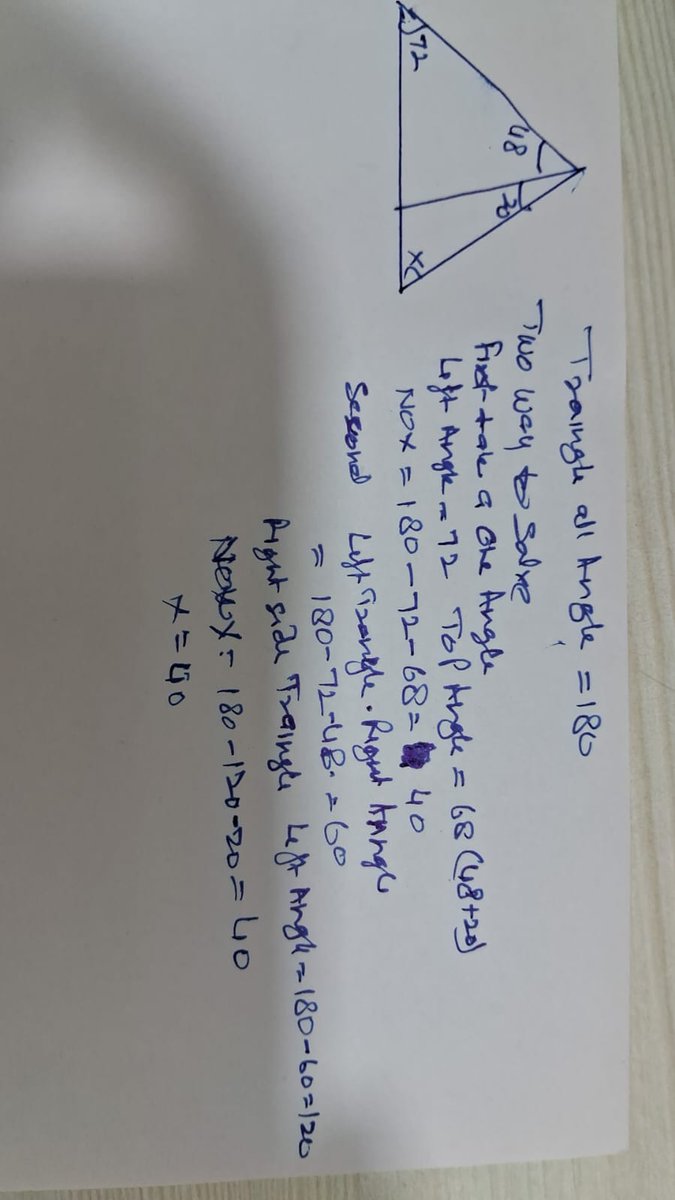 72
48
20
x
Traingle all Angle = 180
Two way to Solve
First take a one Angle
Left Angle = 72 Top Angle = 68 (48+20)
Now x = 180-72-68= 40
Second Left Traingle. Right Anngle
= 180-72-48. = 60
Right side Traingle Left Angle = 180-60=120
Now x = 180-120-20 = 40
x = 40